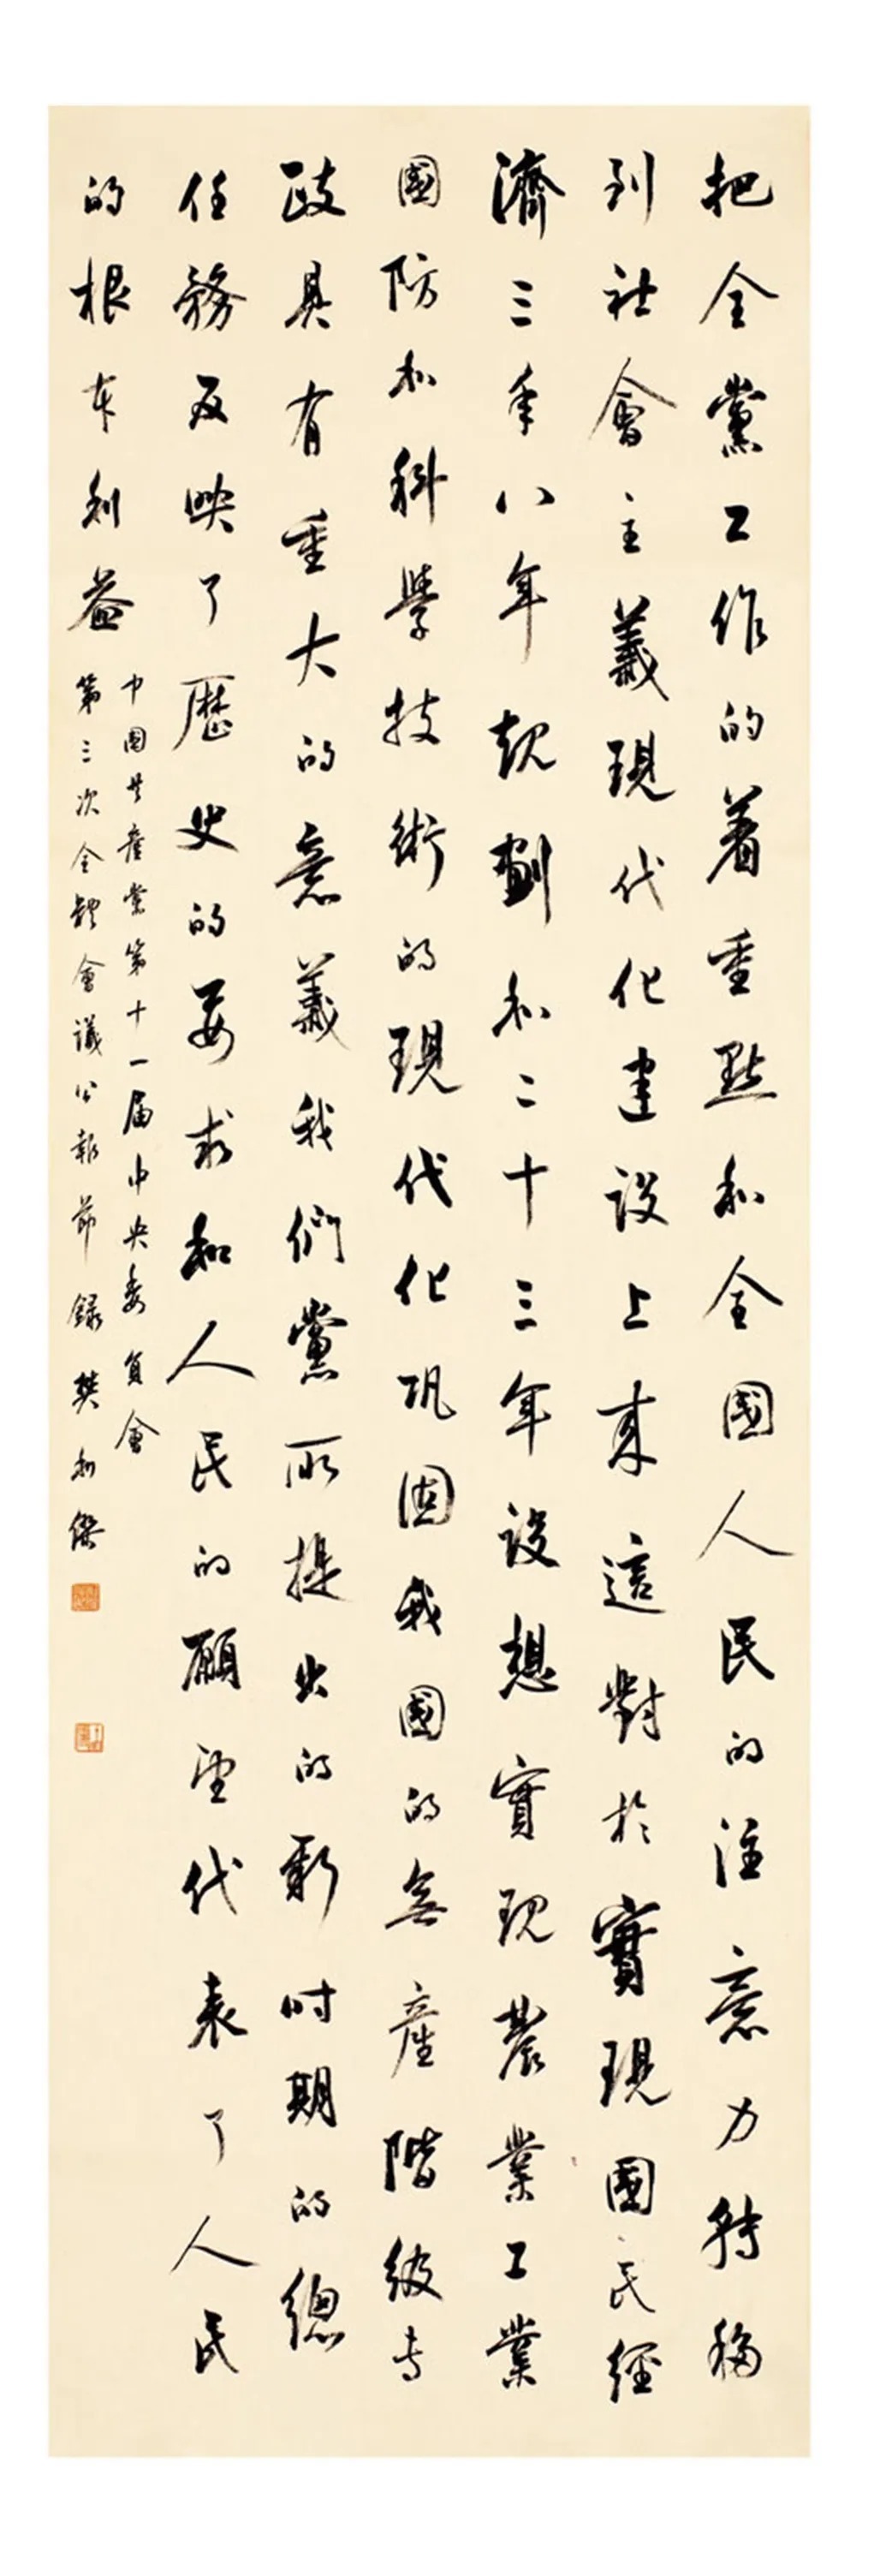 把全黨工作的着重點和全國人民的注意力轉移
到社會主義現代化建設上來這對於實現國民經
濟三年八年規劃和二十三年設想實現農業工業
國防和科學技術的現代化巩固我國的無產階級專
政具有重大的意義我們黨所提出的新時期的總
任務反映了歷史的要求和人民的願望代表了人民
的根本利益
中國共產黨第十一届中央委員會
第三次全體會議公報節錄樊利傑